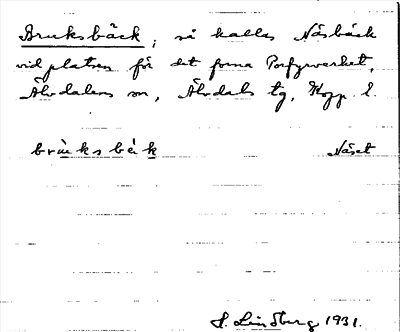 Bruksbäck, så kallas Näsbäck
vid platsen för det forna Porfyrverket,
Älvdalens sn, Älvdals tg, Kopp. l.
brùksbèk Näset
S. Lindberg 1931.